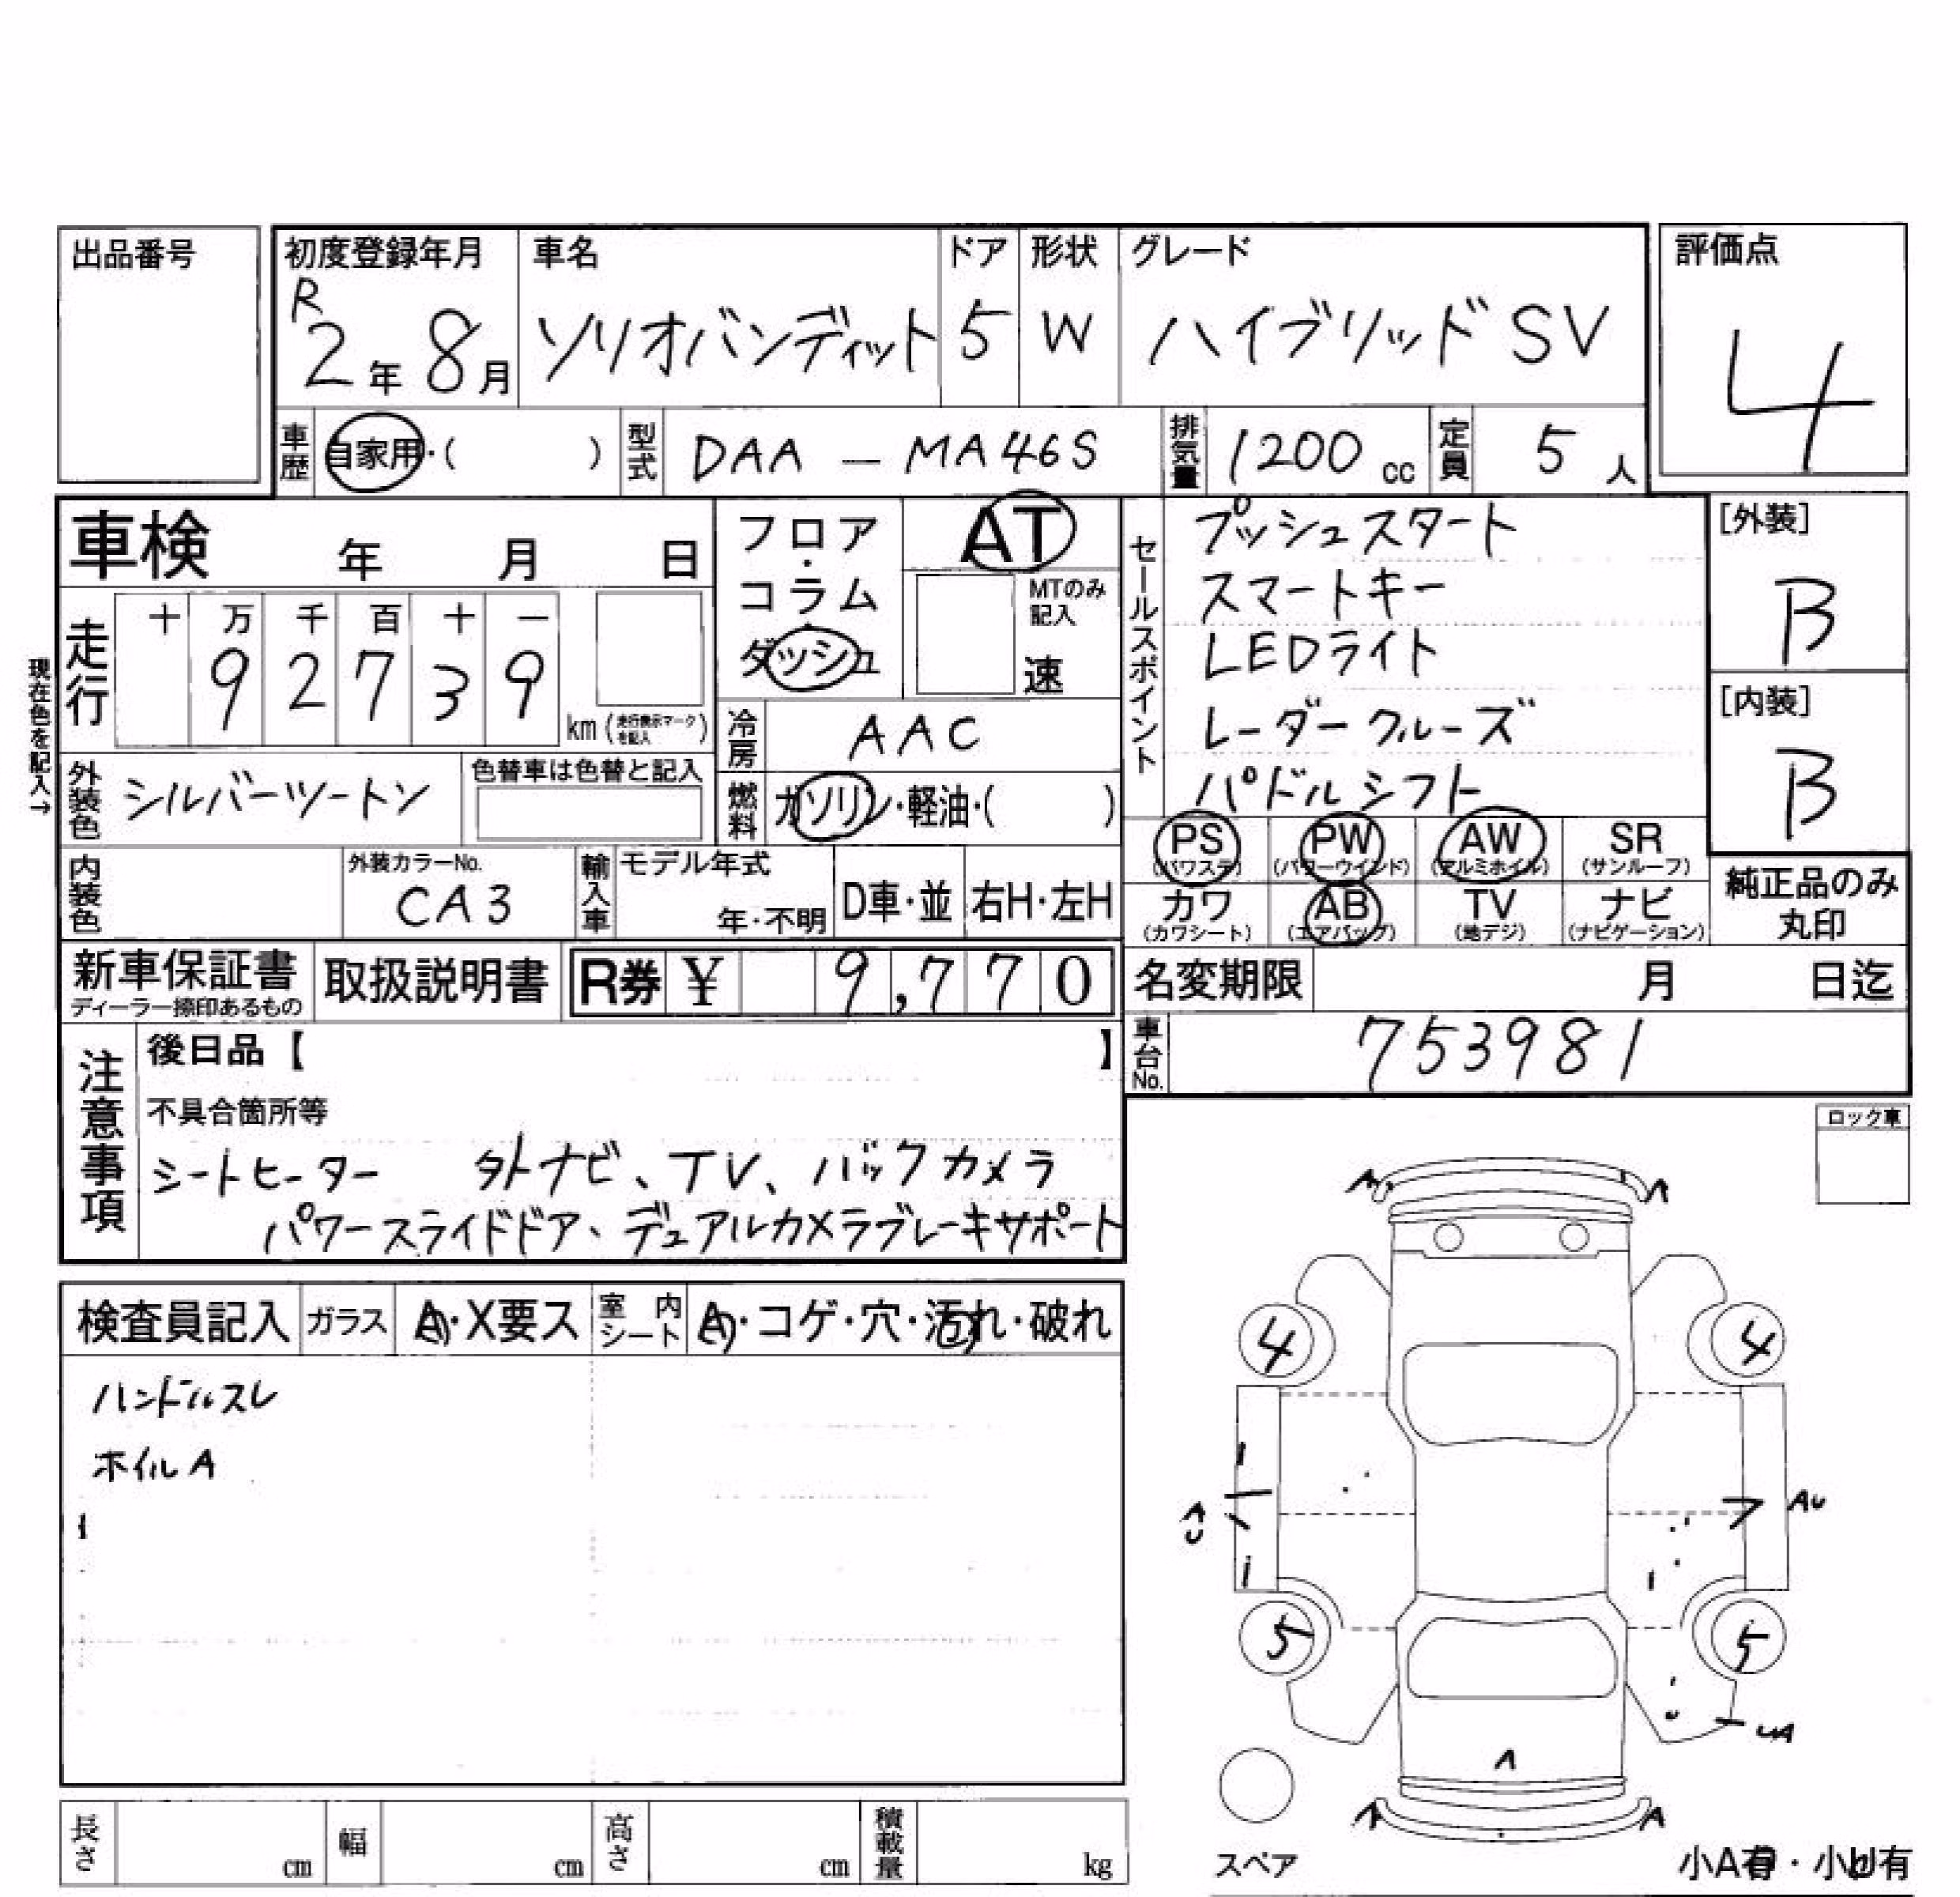 出品番号
初度登録年月 車名 ドア 形状 グレード 評価点
R
2年 8月 ソリオバンディット 5 W ハイブリッド SV 4
車歴 自家用・( ) 型式 DAA - MA46S 排気量 1200 cc 定員 5 人
車検 年 月 日
フロア・コラム・ダッシュ
AT
MTのみ記入
速
セールスポイント
プッシュスタート
スマートキー
LEDライト
レーダークルーズ
パドルシフト
[外装]
B
[内装]
B
現在色を記入→
走行 十 万 千 百 十 一
9 2 7 3 9 km (走行表示マークを記入)
冷房 AAC
外装色 シルバーツートン 色替車は色替と記入
燃料 ガソリン・軽油・( )
PS (パワステ) PW (パワーウインド) AW (アルミホイル) SR (サンルーフ)
カワ (カワシート) AB (エアバッグ) TV (地デジ) ナビ (ナビゲーション)
純正品のみ
丸印
内装色 外装カラーNo. CA3 輸入車 モデル年式 年・不明 D車・並 右H・左H
新車保証書 ディーラー捺印あるもの 取扱説明書 R券 ¥ 9,770
名変期限 月 日迄
車台No. 753981
注意事項
後日品【 】
不具合箇所等
シートヒーター 外ナビ、TV、バックカメラ
パワースライドドア、デュアルカメラブレーキサポート
ロック車
検査員記入 ガラス A・X要ス 室内シート A・コゲ・穴・汚れ・破れ
ハンドルスレ
ホイルA
A A
4 4
AU AU
5 5
UA
A
A A
スペア
小A有・小U有
長さ cm 幅 cm 高さ cm 積載量 kg